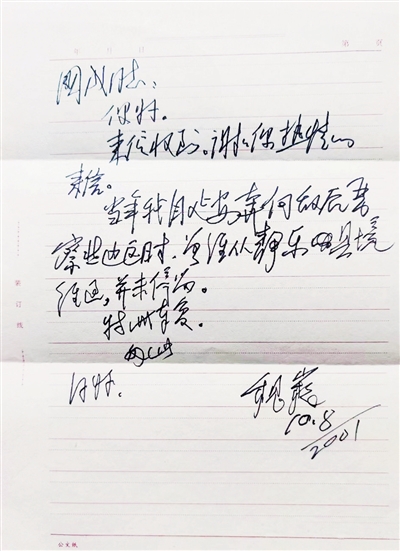 年 月 日 第 页
国成同志：
你好。
来信收到。谢谢你热情的
来信。
当年我自延安奔向敌后晋
察冀边区时，曾经从静乐县境
经过，并未停留。
特此奉复。
问好。
魏巍
10.8
2001
订
线
公文纸